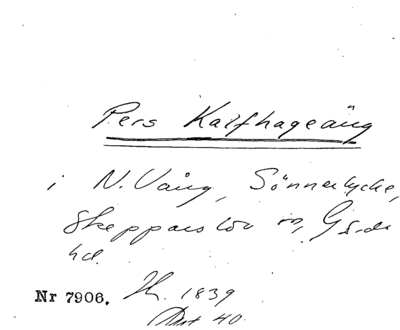 Pers Kalfhageäng
i N. Vång, Sönnerlycke,
Skeppars lov m, Gärds
hd.
Nr 7906. Th. 1839
Akt 40.